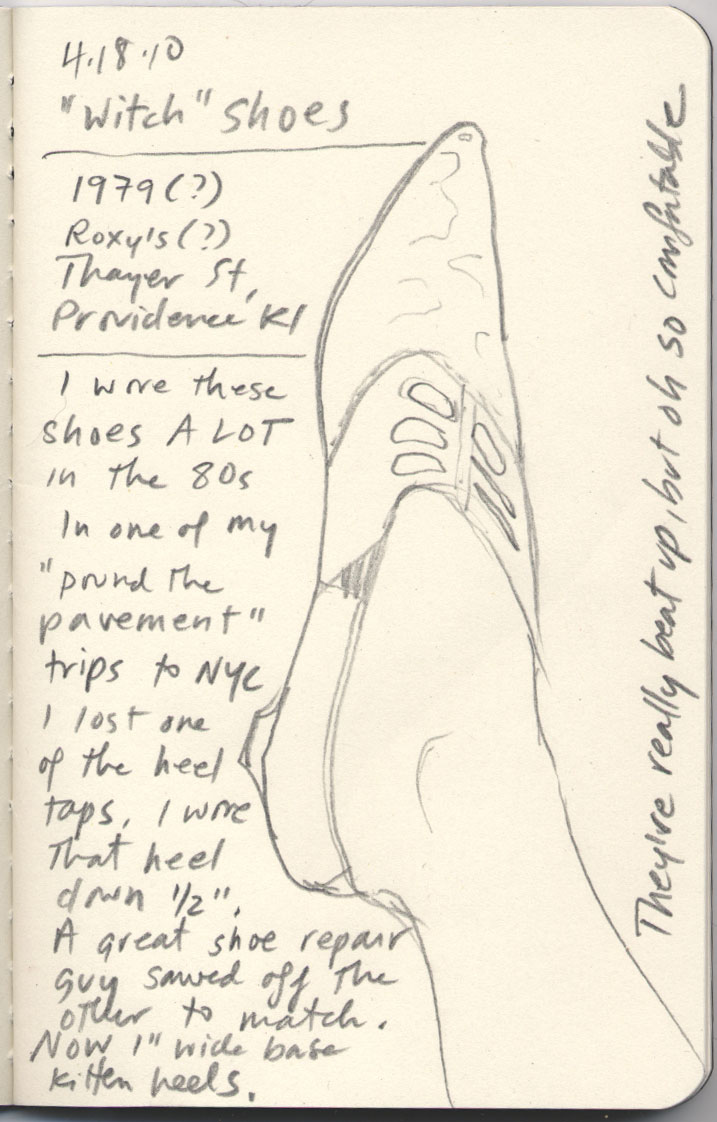 4.18.10
"Witch" shoes
1979(?)
Roxy's(?)
Thayer St,
Providence RI
I wore these
shoes A LOT
in the 80s
In one of my
"pound the
pavement"
trips to NYC
I lost one
of the heel
taps. I wore
that heel
down 1/2".
A great shoe repair
guy sawed off the
other to match.
Now 1" wide base
kitten heels.
They're really beat up, but oh so comfortable